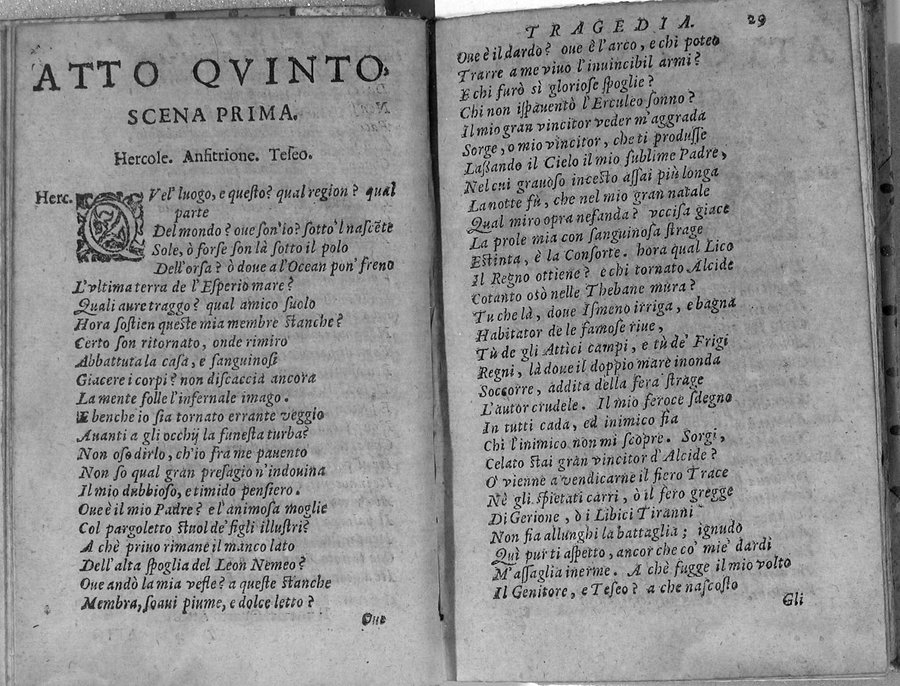 ATTO QVINTO,
SCENA PRIMA.
Hercole. Anfitrione. Teſeo.
Herc. QVel' luogo, e queſto? qual region? qual
parte
Del mondo? oue ſon'io? ſotto'l naſcẽte
Sole, ò forſe ſon là ſotto il polo
Dell'orſa? ò doue a l'Ocean pon' freno
L'vltima terra de l'Eſperio mare?
Quali aure traggo? qual amico ſuolo
Hora ſoſtien queſte mia membre ſtanche?
Certo ſon ritornato, onde rimiro
Abbattuta la caſa, e ſanguinoſi
Giacere i corpi? non diſcaccia ancora
La mente folle l'infernale imago.
E benche io ſia tornato errante veggio
Auanti a gli occhij la funeſta turba?
Non oſo dirlo, ch'io fra me pauento
Non ſo qual gran preſagio n'indouina
Il mio dubbioſo, e timido penſiero.
Oue è il mio Padre? e l'animoſa moglie
Col pargoletto ſtuol de' figli illuſtri?
A chè priuo rimane il manco lato
Dell'alta ſpoglia del Leon Nemeo?
Oue andò la mia veſte? a queſte ſtanche
Membra, ſoaui piume, e dolce letto?
Oue
TRAGEDIA. 29
Oue è il dardo? oue è l'arco, e chi poteo
Trarre a me viuo l'inuincibil armi?
E chi furò sì glorioſe ſpoglie?
Chi non iſpauentò l'Erculeo ſonno?
Il mio gran vincitor veder m'aggrada
Sorge, o mio vincitor, che ti produſſe
Laſſando il Cielo il mio ſublime Padre,
Nel cui grauoſo inceſto aſſai più longa
La notte fù, che nel mio gran natale
Qual miro opra nefanda? vcciſa giace
La prole mia con ſanguinoſa ſtrage
Eſtinta, è la Conſorte. hora qual Lico
Il Regno ottiene? e chi tornato Alcide
Cotanto osò nelle Thebane mura?
Tu che là, doue Iſmeno irriga, e bagna
Habitator de le famoſe riue,
Tù de gli Attici campi, e tù de' Frigi
Regni, là doue il doppio mare inonda
Soccorre, addita della fera ſtrage
L'autor crudele. Il mio feroce ſdegno
In tutti cada, ed inimico fia
Chi l'inimico non mi ſcopre. Sorgi,
Celato ſtai gran vincitor d'Alcide?
O' vienne a vendicarne il fiero Trace
Nè gli ſpietati carri, ò il fero gregge
Di Gerione, ò i Libici Tiranni
Non fia allunghi la battaglia; ignudo
Quì pur ti aſpetto, ancor che co' mie' dardi
M'aſſaglia inerme. A chè fugge il mio volto
Il Genitore, e Teſeo? a che naſcoſto
Gli